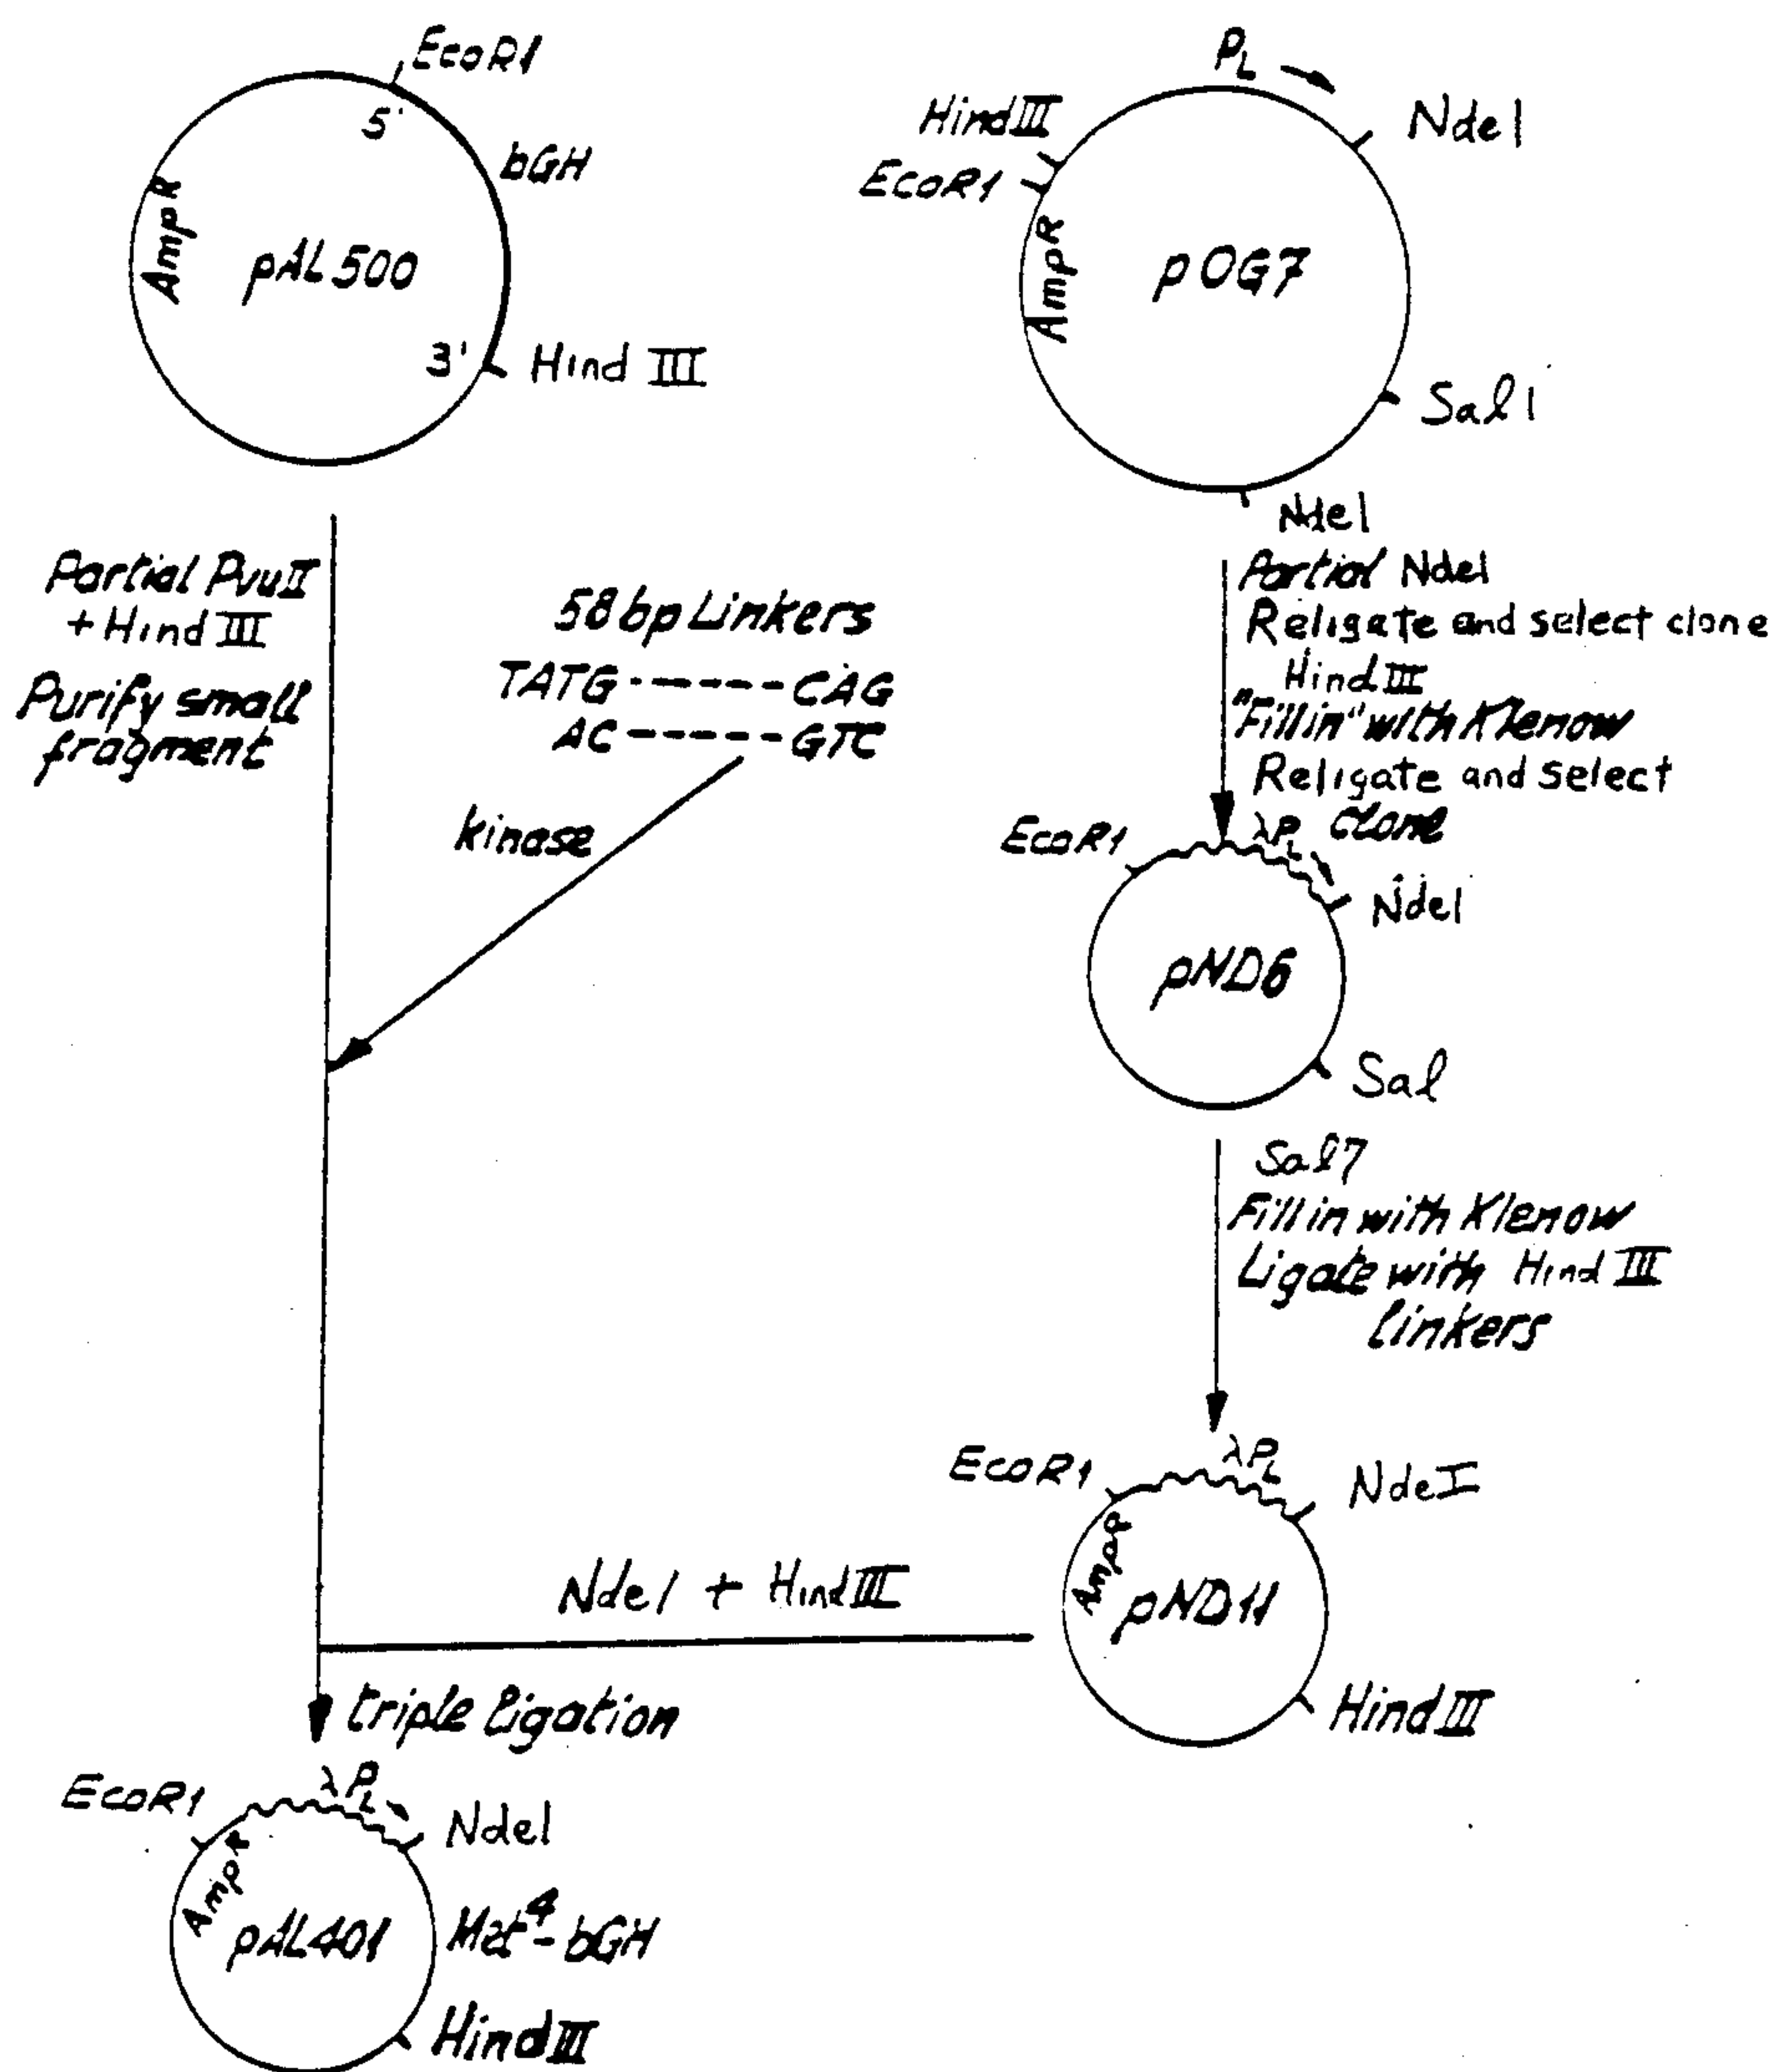 EcoR1
5'
bGH
AmpR
pAL500
3'
Hind III
PL
Hind III
EcoR1
Nde1
AmpR
pOG7
Sal1
Nde1
Partial PvuII
+ Hind III
Purify small
fragment
58bp Linkers
TATG------CAG
AC-----GTC
kinase
Partial Nde1
Religate and select clone
Hind III
"Fill in" with Klenow
Religate and select
clone
EcoR1
λPL
Nde1
pND6
Sal
Sal7
Fill in with Klenow
Ligate with Hind III
linkers
EcoR1
λPL
NdeI
AmpR
pND11
Hind III
Nde1 + Hind III
triple ligation
EcoR1
λPL
Nde1
AmpR
pAL401
Met4-bGH
Hind III